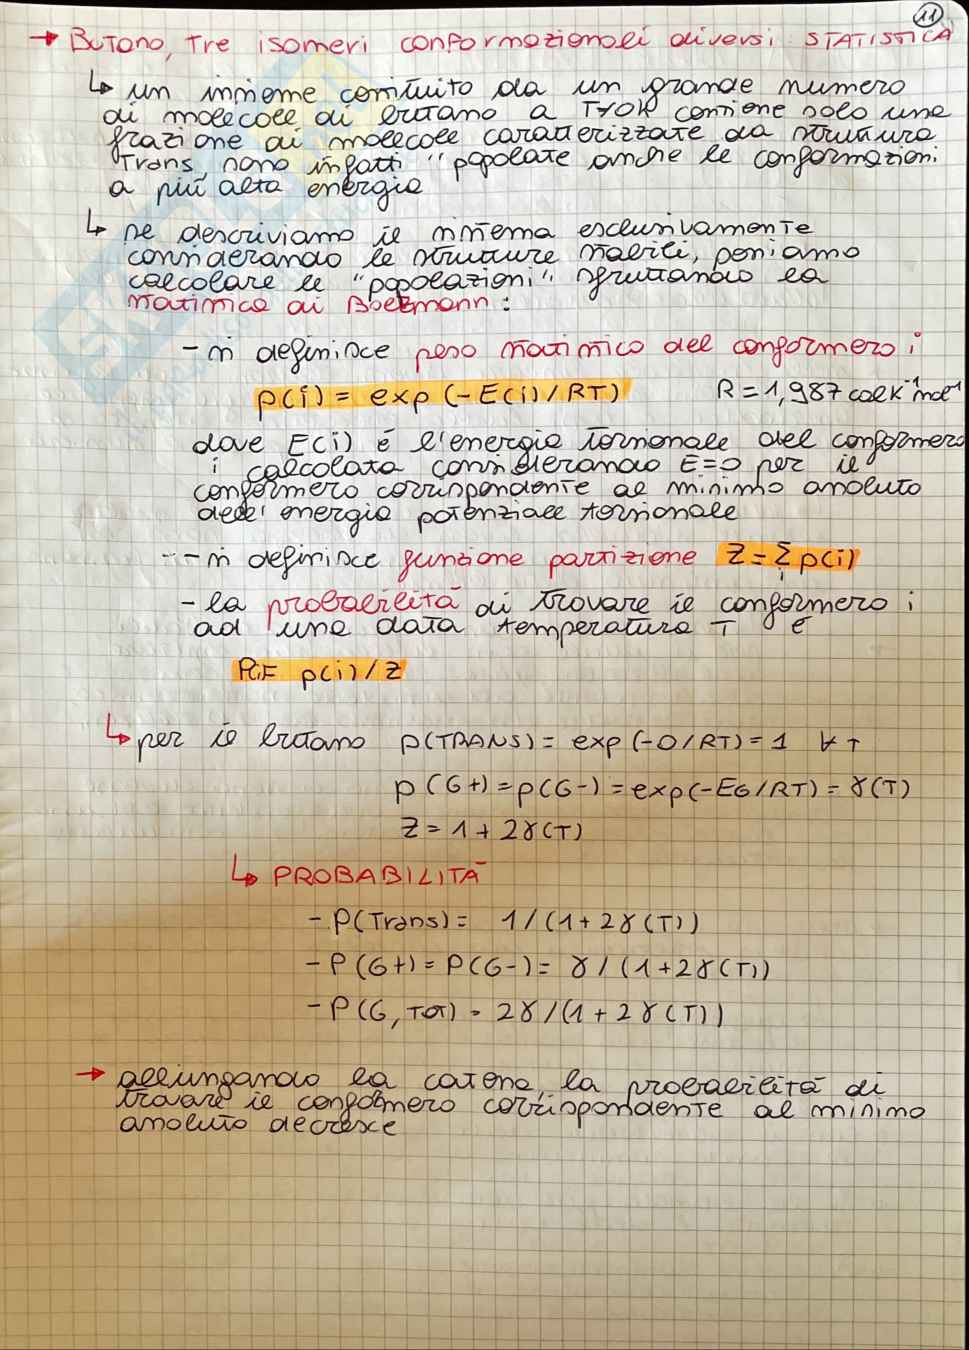 11
→ Butano, tre isomeri conformazionali diversi STATISTICA
↳ un insieme costituito da un grande numero
di molecole di butano a T>0K contiene solo una
frazione di molecole caratterizzate da struttura
Trans, sono infatti "popolate anche le conformazioni
a più alta energia
↳ se descriviamo il sistema esclusivamente
considerando le strutture stabili, possiamo
calcolare le "popolazioni" sfruttando la
statistica di Boltzmann:
- si definisce peso statistico del conformero i
p(i) = exp (-E(i)/RT) R=1,987 cal K⁻¹ mol⁻¹
dove E(i) è l'energia torsionale del conformero
i calcolata considerando E=0 per il
conformero corrispondente al minimo assoluto
dell'energia potenziale torsionale
- si definisce funzione partizione Z=Σᵢ p(i)
- la probabilità di trovare il conformero i
ad una data temperatura T è
p(i)/Z
↳ per il butano p(TRANS) = exp(-0/RT) = 1 ∀ T
p(G+)=p(G-)=exp(-EG/RT)=γ(T)
Z=1+2γ(T)
↳ PROBABILITÀ
- P(Trans)= 1/(1+2γ(T))
- P(G+)=P(G-)= γ/(1+2γ(T))
- P(G,TOT) = 2γ/(1+2γ(T))
→ allungando la catena, la probabilità di
trovare il conformero corrispondente al minimo
assoluto decresce